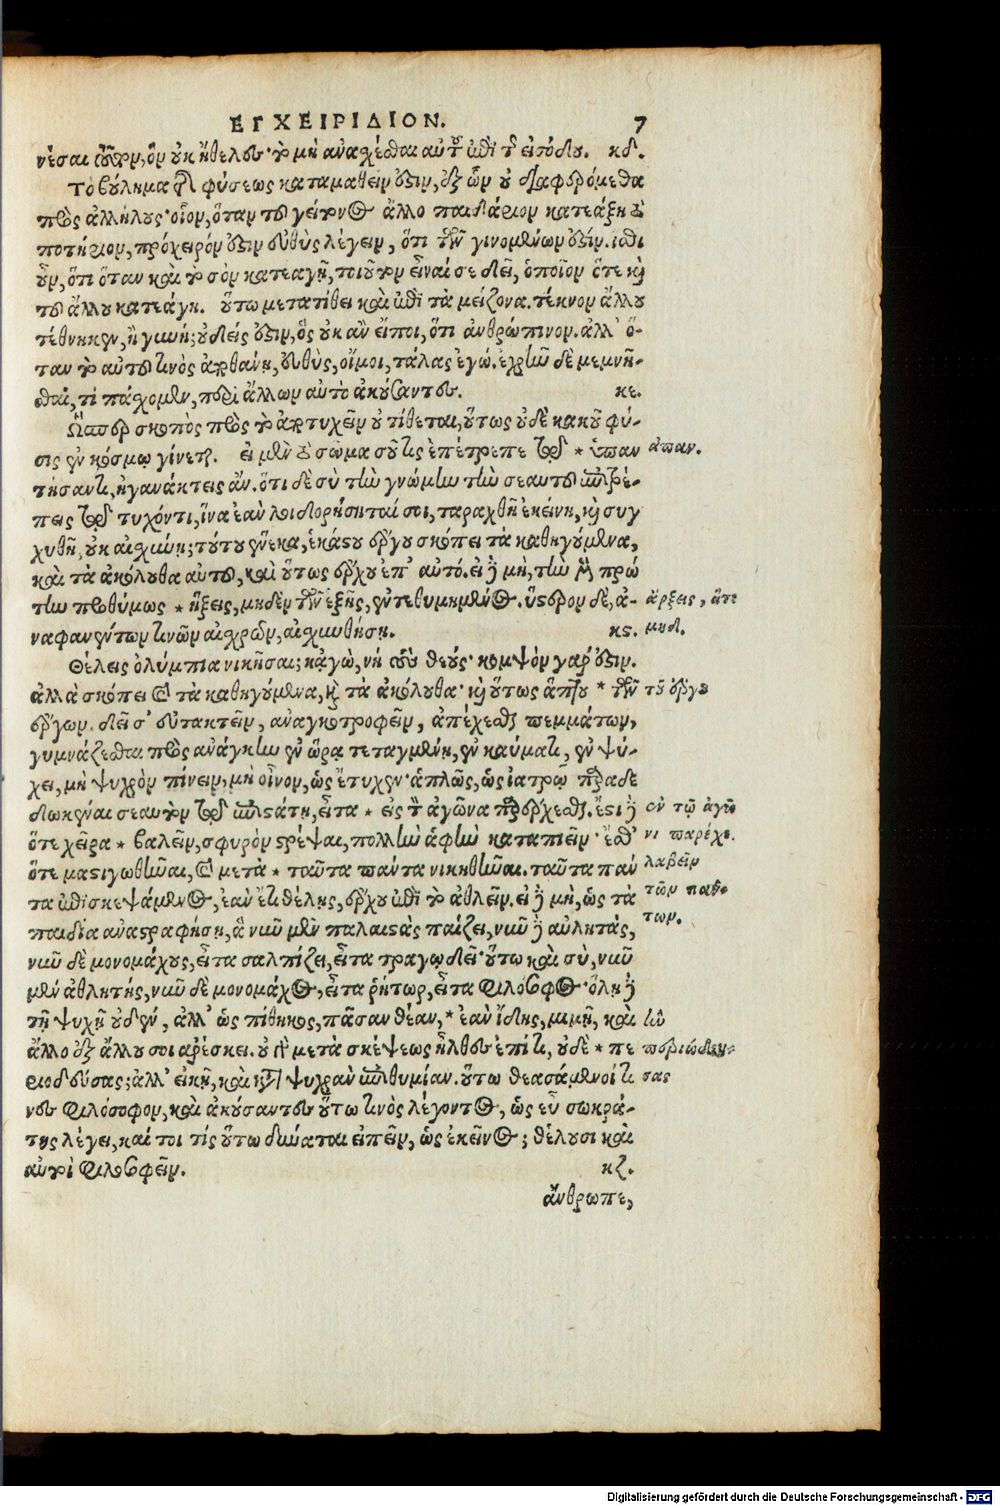 ΕΓΧΕΙΡΙΔΙΟΝ. 7
νέσαι τοῦτον, ὃν οὐκ ἤθελες· τὸ μὴ ἀναχέσθαι αὐτοῦ ἐπὶ τῆς εἰσόδου. κδ.
Τὸ βούλημα τῆς φύσεως καταμαθεῖν ἔστιν, ἐξ ὧν οὐ διαφερόμεθα
πρὸς ἀλλήλους· οἷον, ὅταν τοῦ γείτονος ἄλλο παιδάριον κατεάξῃ τὸ
ποτήριον, πρόχειρόν ἐστιν εὐθὺς λέγειν, ὅτι τῶν γινομένων ἐστίν. ἴσθι
οὖν, ὅτι ὅταν καὶ τὸ σὸν κατεαγῇ, τοιοῦτον εἶναί σε δεῖ, ὁποῖον ὅτε καὶ
τοῦ ἄλλου κατεάγη. οὕτω μετατίθει καὶ ἐπὶ τὰ μείζονα. τέκνον ἄλλου
τέθνηκεν, ἢ γυνή; οὐδείς ἐστιν, ὃς οὐκ ἂν εἴποι, ὅτι ἀνθρώπινον. ἀλλ' ὅ-
ταν τὸ αὐτοῦ τινὸς ἀποθάνῃ, εὐθὺς, οἴμοι, τάλας ἐγώ. ἐχρῆν δὲ μεμνῆ-
σθαι, τί πάσχομεν, περὶ ἄλλων αὐτὸ ἀκούσαντες. κε.
Ὥσπερ σκοπὸς πρὸς τὸ ἀποτυχεῖν οὐ τίθεται, οὕτως οὐδὲ κακοῦ φύ-
σις ἐν κόσμῳ γίνεται. εἰ μὲν τὸ σῶμα σοῦ τις ἐπέτρεπε τῷ * ὑπαν ἀπαν.
τήσαντι, ἠγανάκτεις ἄν. ὅτι δὲ σὺ τὴν γνώμην τὴν σεαυτοῦ ἐπιτρέ-
πεις τῷ τυχόντι, ἵνα ἐὰν λοιδορήσηταί σοι, ταραχθῇ ἐκείνη, καὶ συγ
χυθῇ, οὐκ αἰσχύνῃ; τούτου ἕνεκα, ἑκάστου ἔργου σκόπει τὰ καθηγούμενα,
καὶ τὰ ἀκόλουθα αὐτοῦ, καὶ οὕτως ἔρχου ἐπ' αὐτό. εἰ δὲ μὴ, τὴν μὲν πρώ
την προθύμως * ἥξεις, μηδὲν τῶν ἑξῆς, ἐντεθυμημένος. ὕστερον δὲ, ἀ- ἄρξεις, ἅτε
ναφανέντων τινῶν αἰσχρῶν, αἰσχυνθήσῃ. κς. μηδ.
Θέλεις ὀλύμπια νικῆσαι; κἀγὼ, νὴ τοὺς θεούς· κομψὸν γάρ ἐστιν.
ἀλλὰ σκόπει καὶ τὰ καθηγούμενα, καὶ τὰ ἀκόλουθα· καὶ οὕτως ἅπτου * τῶν τοῦ ἔργου
ἔργων. δεῖ σ' εὐτακτεῖν, ἀναγκοτροφεῖν, ἀπέχεσθαι πεμμάτων,
γυμνάζεσθαι πρὸς ἀνάγκην ἐν ὥρᾳ τεταγμένῃ, ἐν καύματι, ἐν ψύ-
χει, μὴ ψυχρὸν πίνειν, μὴ οἶνον, ὡς ἔτυχεν· ἁπλῶς, ὡς ἰατρῷ παραδε
δωκέναι σεαυτὸν τῷ ἐπιστάτῃ, εἶτα * εἰς τὸν ἀγῶνα παρέρχεσθαι. ἔστι δὲ ἐν τῷ ἀγῶ
ὅτε χεῖρα * βαλεῖν, σφυρὸν στρέψαι, πολλὴν ἁφὴν καταπιεῖν· ἔσθ' νι παρέχε.
ὅτε μαστιγωθῆναι, καὶ μετὰ * ταῦτα πάντα νικηθῆναι. ταῦτα παν λαβεῖν
τα ἐπισκεψάμενος, ἐὰν ἔτι θέλῃς, ἔρχου ἐπὶ τὸ ἀθλεῖν. εἰ δὲ μὴ, ὡς τὰ τῶν πάν-
παιδία ἀναστραφήσῃ, ἃ νῦν μὲν παλαιστὰς παίζει, νῦν δὲ αὐλητάς, των.
νῦν δὲ μονομάχους, εἶτα σαλπίζει, εἶτα τραγῳδεῖ· οὕτω καὶ σὺ, νῦν
μὲν ἀθλητής, νῦν δὲ μονομάχος, εἶτα ῥήτωρ, εἶτα φιλόσοφος· ὅλῃ δὲ
τῇ ψυχῇ οὐδὲν, ἀλλ' ὡς πίθηκος, πᾶσαν θέαν, * ἐὰν ἴδῃς, μιμῇ, καὶ ἣν
ἄλλο ἐξ ἄλλου σοι ἀρέσκει. οὐ γὰρ μετὰ σκέψεως ἦλθες ἐπί τι, οὐδὲ * πε περιωδευ-
ριοδεύσας; ἀλλ' εἰκῆ, καὶ κατὰ ψυχρὰν ἐπιθυμίαν. οὕτω θεασάμενοί τι σας
νες φιλόσοφον, καὶ ἀκούσαντες οὕτω τινὸς λέγοντος, ὡς εὖ σωκρά-
της λέγει, καί τοι τίς οὕτω δύναται εἰπεῖν, ὡς ἐκεῖνος; θέλουσι καὶ
αὐτοὶ φιλοσοφεῖν. κζ.
ἄνθρωπε,
Digitalisierung gefördert durch die Deutsche Forschungsgemeinschaft - DFG